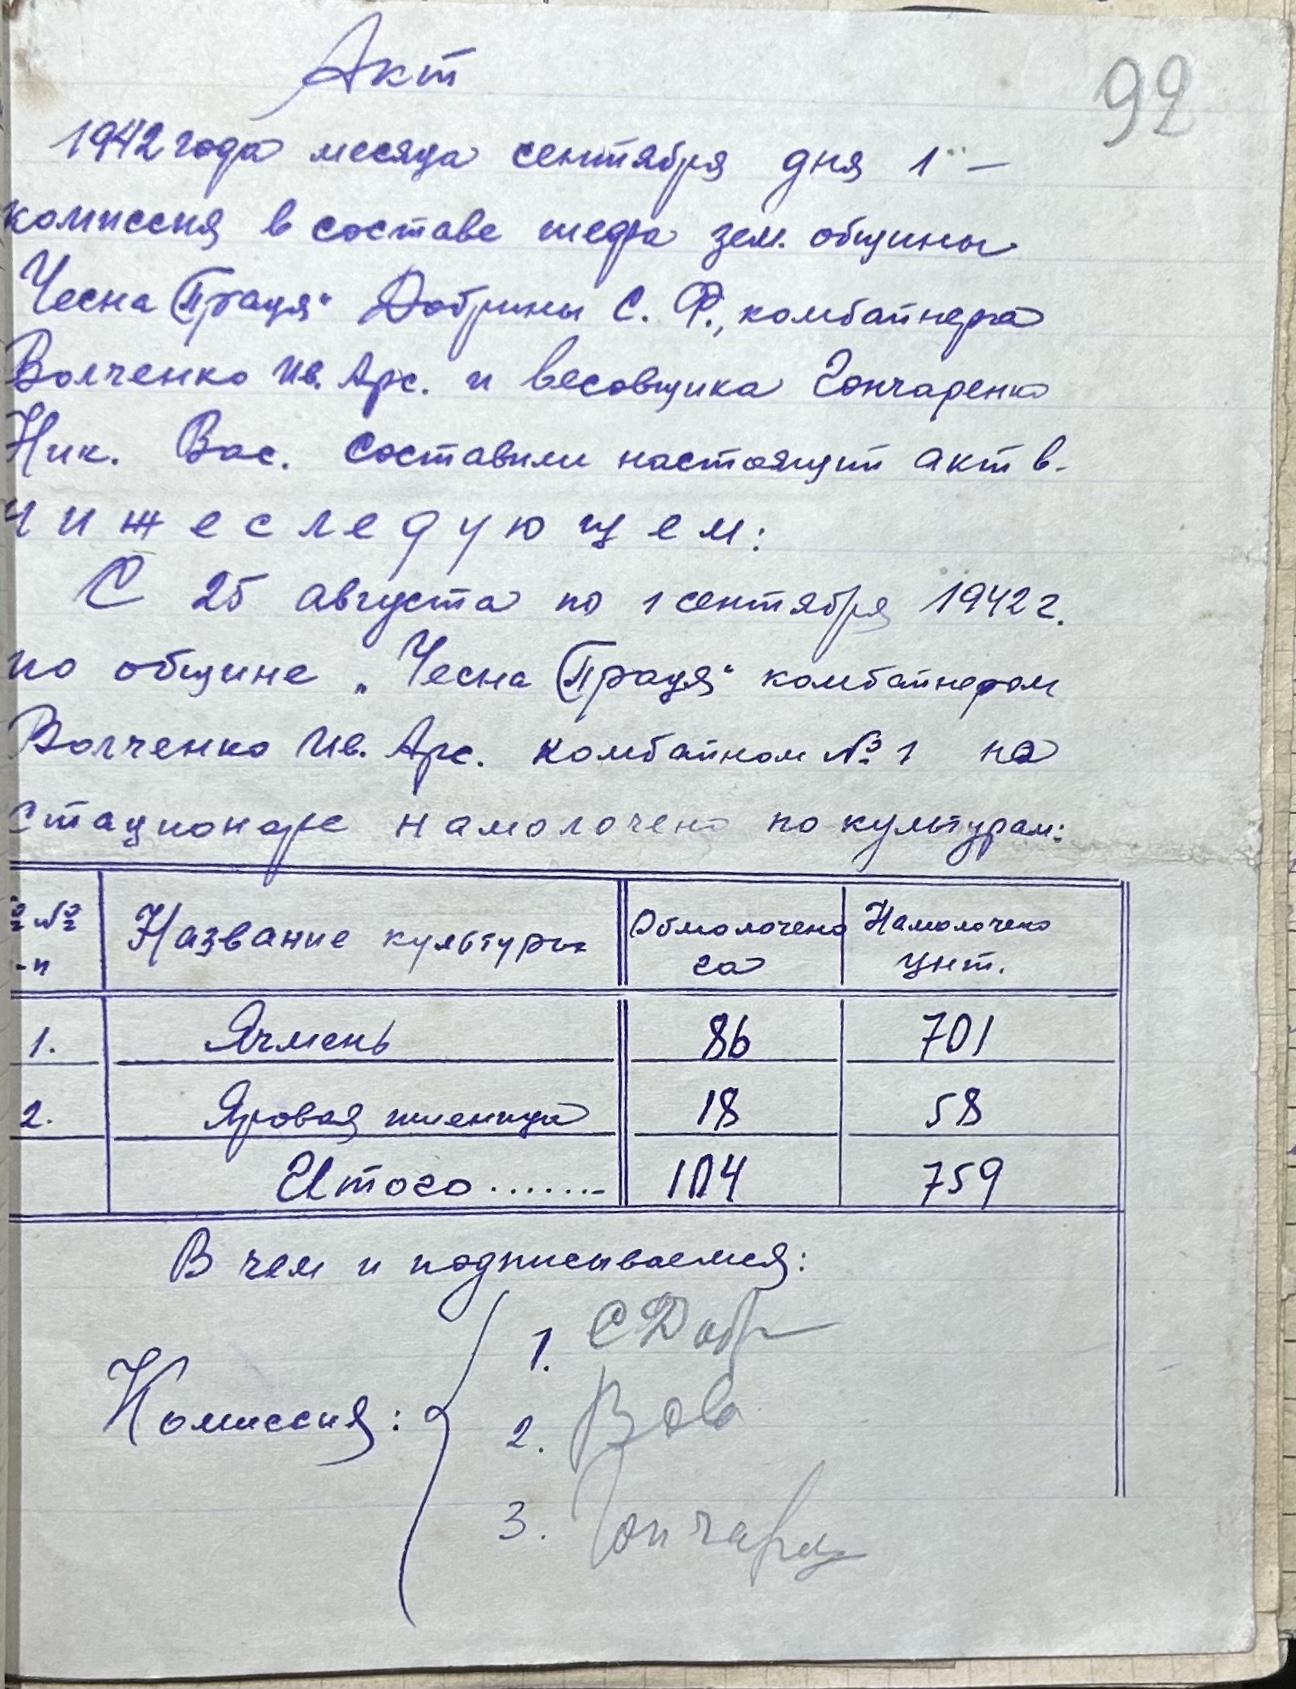 92
Акт
1942 года месяца сентября дня 1 —
комиссия в составе шефа зем. общины
Чесна Праця" Добрины С. Ф., комбайнера
Волченко Ив. Арс. и весовщика Гончаренко
Ник. Вас. составили настоящий акт в-
нижеследующем:
С 25 августа по 1 сентября 1942 г.
по общине „Чесна Праця" комбайнером
Волченко Ив. Арс. комбайном № 1 на
стационаре намолочено по культурам:
№ № Название культуры Обмолочено Намолочено
-п га цнт.
1. Ячмень 86 701
2. Яровая пшеница 18 58
Итого ....... 104 759
В чем и подписываемся:
Комиссия: 1. СДобр
2.
3. Гончарен